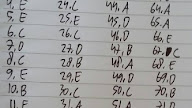 4. E 24. C 44. A 64. A
5. E 25. E 45. D 65. A
6. C 26. C 46. A 66. E
7. D 27. D 47. B 62. C
8. C 28. A 48. A 68. E
9. E 29. E 49. D 69. D
10. B 30. C 50. C 70. B
11. E 31. A 51. A